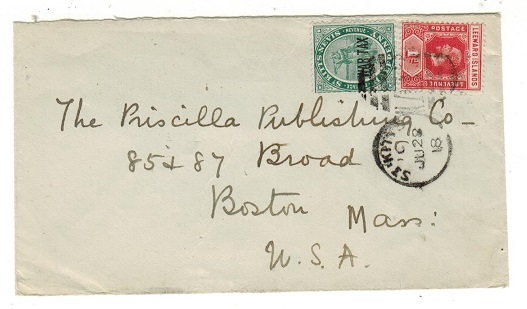 ST KITTS NEVIS
REVENUE
WAR TAX
LEEWARD ISLANDS
POSTAGE
& REVENUE
The Priscilla Publishing Co_
85 & 87 Broad
Boston Mass:
U.S.A.
ST KITTS
JU 28
18